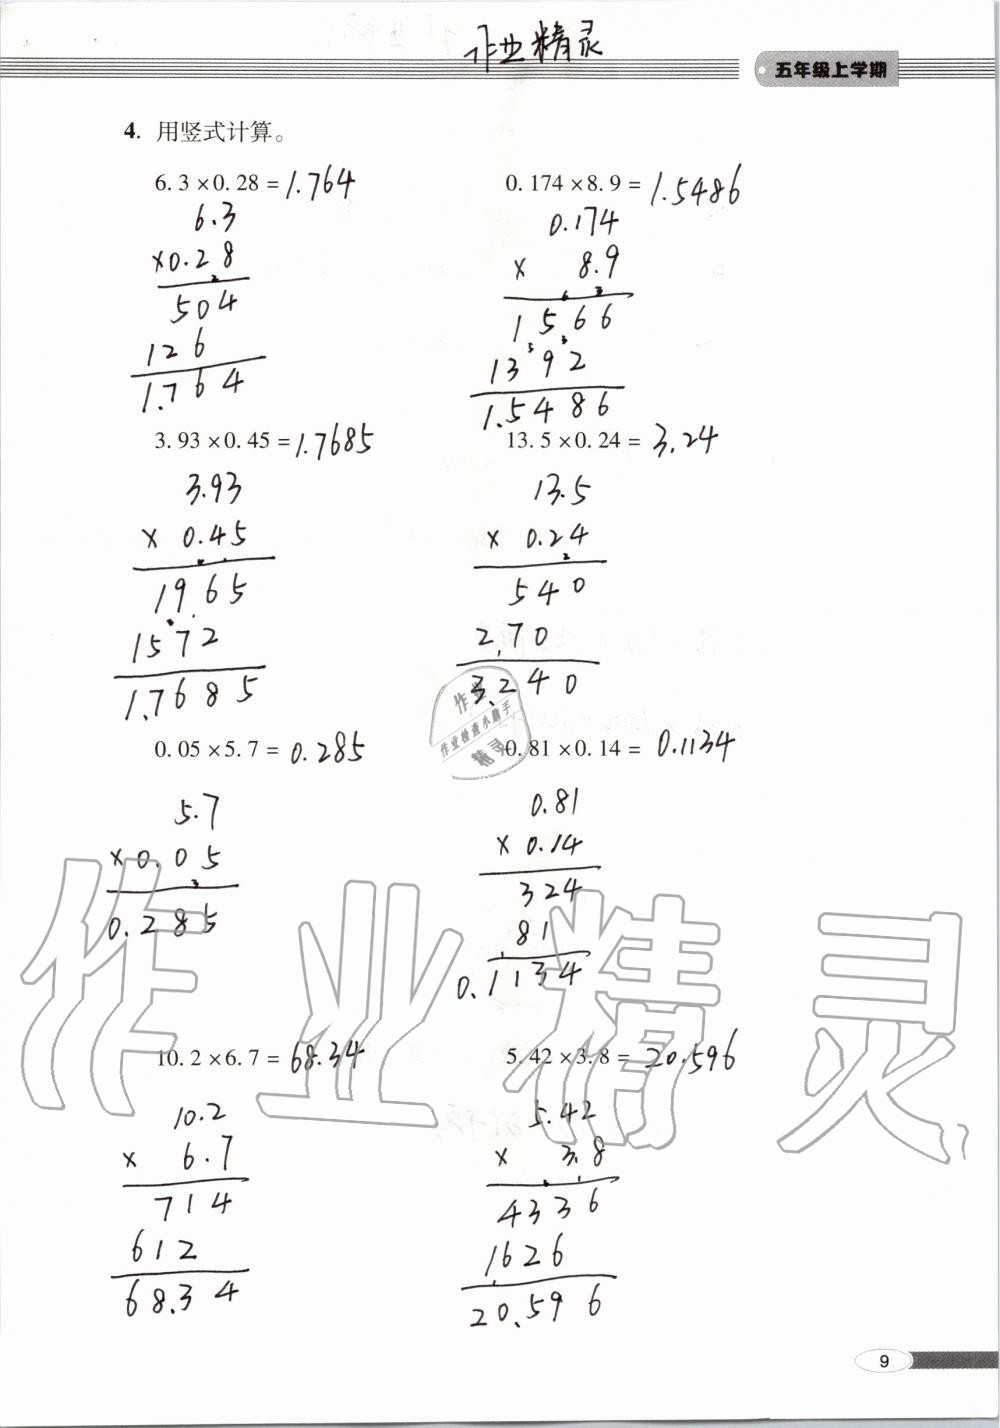 作业精灵
五年级上学期
4. 用竖式计算。
6.3×0.28=1.764
0.174×8.9=1.5486
6.3
×0.28
504
126
1.764
0.174
× 8.9
1566
1392
1.5486
3.93×0.45=1.7685
13.5×0.24=3.24
3.93
× 0.45
1965
1572
1.7685
13.5
× 0.24
540
270
3.240
作业
作业检查小助手
精灵
0.05×5.7=0.285
0.81×0.14=0.1134
5.7
×0.05
0.285
0.81
× 0.14
324
81
0.1134
作业精灵
10.2×6.7=68.34
5.42×3.8=20.596
10.2
× 6.7
714
612
68.34
5.42
× 3.8
4336
1626
20.596
9